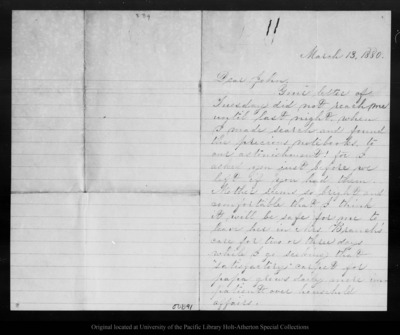 11
March 13, 1880.
Dear John,
Your letter of
Tuesday did not reach me
until last night, when
I made search and found
the precious notebooks to
our astonishment! for I
asked you just before we
left if you had them.
Mother seems so bright and
comfortable that I think
it will be safe for me to
leave her in Mrs.
care for two or three days
while I go securing that
"satisfactory" carpet for
papa grows daily more im-
patient over household
affairs.
Located at University of the Pacific Library Holt-Atherton Special Collections